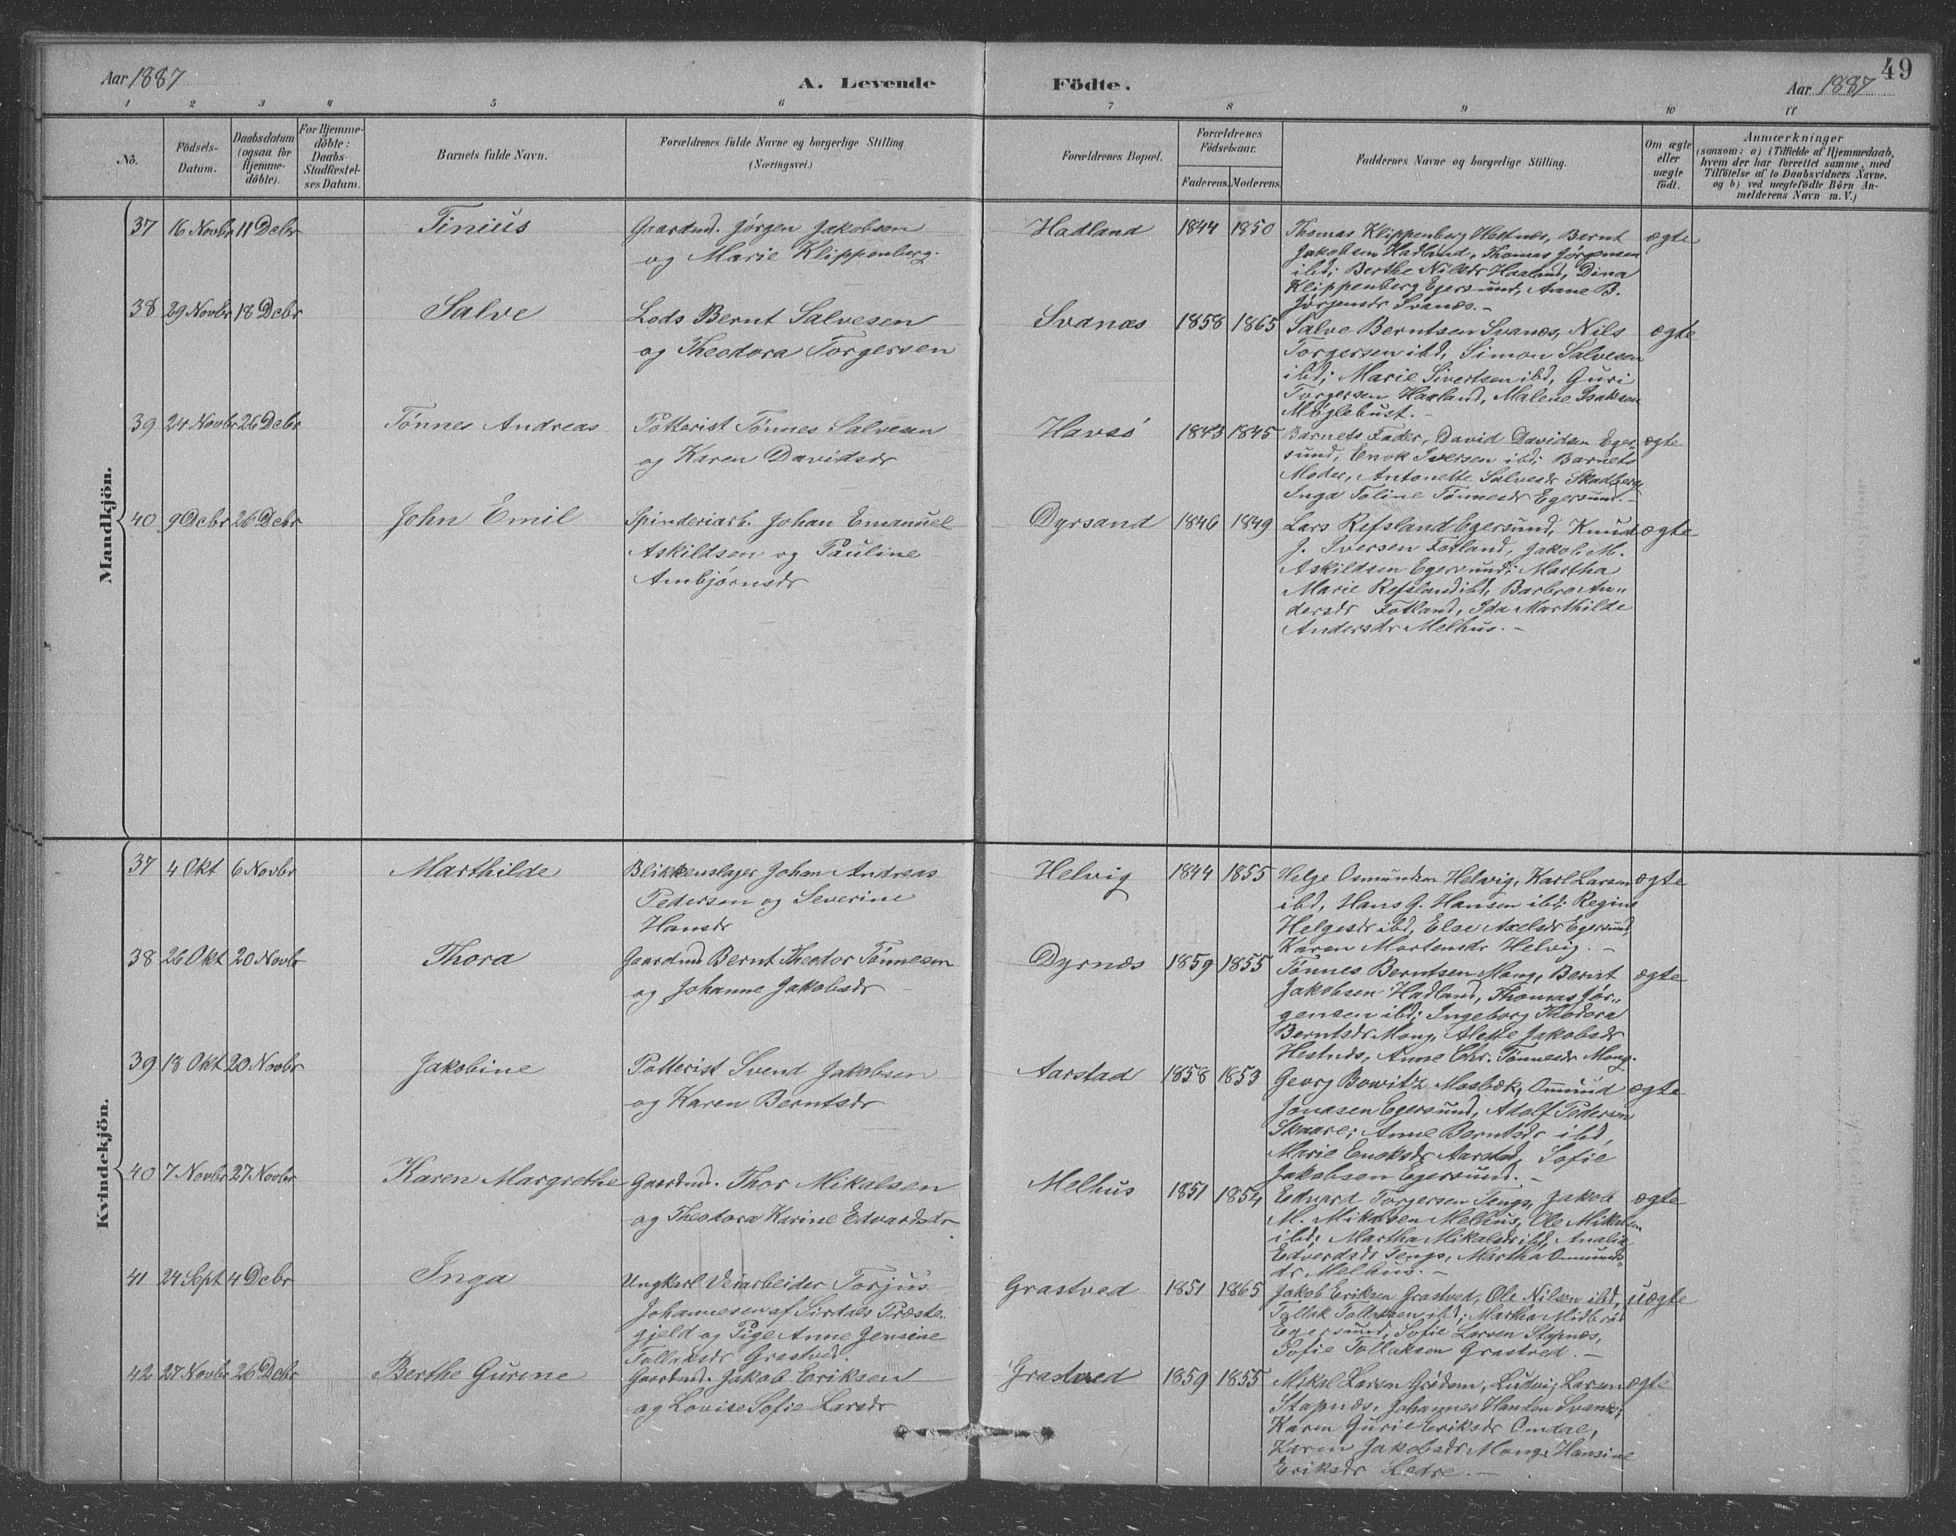 49
Aar 1887 A. Levende Födte. Aar 1887
1 2 3 4 5 6 7 8 9 10 11
No.
Födsels-
Datum.
Daabsdatum
(ogsaa for
Hjemme-
döbte).
For Hjemme-
döbte:
Daabs-
Stadfæstel-
ses Datum.
Barnets fulde Navn.
Forældrenes fulde Navne og borgerlige Stilling
(Næringsvei.)
Forældrenes Bopæl.
Forældrenes
Födselsaar.
Faderens. Moderens.
Faddernes Navne og borgerlige Stilling.
Om ægte
eller
uægte
födt.
Anmærkninger
(saasom: a) i Tilfælde af Hjemmedaab,
hvem der har forrettet samme, med
Tilföielse af to Daabsvidners Navne.
og b) ved uægtefödte Börn An-
melderens Navn m. V.)
Mandkjön.
37 16 Novbr 11 Debr Tinius
Gaardmd. Jørgen Jakobsen
og Marie Klippenberg.
Hadland 1844 1850
Thomas Klippenberg Hestnes, Bernt
Jakobsen Hadland, Thomas Jørgensen
ibd; Berthe Nilsdr Haaland, Dina
Klippenberg Egersund, Anne B.
Jørgensdr Svanæs.-
ægte
38 29 Novbr 18 Debr Salve
Lods Bernt Salvesen
og Theodora Torgersen
Svanæs 1858 1865
Salve Berntsen Svanæs, Nils
Torgersen ibd, Simon Salvesen
ibd; Marie Sivertsen ibd, Guri
Torgersen Haaland, Malene Isaksen
Møglebust.-
ægte
39 24 Novbr 26 Debr Tønnes Andreas
Potterist Tønnes Salvesen
og Karen Davidsdr
Havsö 1843 1845
Barnets Fader, David Davidsen Eger-
sund, Enok Iversen ibd; Barnets
Moder, Antonette Salvesdr Skadberg
Inga Toline Tønnesdr Egersund.-
ægte
40 9 Debr 26 Debr John Emil
Spinderiarb. Johan Emanuel
Askildsen og Pauline
Ambjørnsdr
Dyrsand 1846 1849
Lars Refsland Egersund, Knud
J. Iversen Fotland, Jakob M.
Askildsen Egersund; Martha
Marie Refsland ibd, Barbro An-
dersdr Fotland, Ida Marthilde
Andersdr Melhus.-
ægte
Kvindekjön.
37 4 Okt 6 Novbr Marthilde
Blikkenslager Johan Andreas
Pedersen og Severine
Hansdr
Helvig 1844 1855
Helge Osmundsen Helvig, Karl Larsen
ibd, Hans G. Hansen ibd; Regine
Helgesdr ibd, Else Axelsdr Egersund,
Karen Mortensdr Helvig.-
ægte
38 26 Okt 20 Novbr Thora
Gaardmd Bernt Theodor Tønnesen
og Johanne Jakobsdr
Dyrnæs 1859 1855
Tønnes Berntsen Mong, Bernt
Jakobsen Hadland, Thomas Jør-
gensen ibd; Ingeborg Theodora
Berntsdr Mong, Alette Jakobsdr
Hestnes, Anne Chr. Tønnesdr Mong.
ægte
39 18 Okt 20 Novbr Jakobine
Potterist Svend Jakobsen
og Karen Berntsdr
Aarstad 1858 1853
Georg Bowitz Mosbæk, Ommund
Jonasen Egersund, Adolf Pedersen
Skaare; Anne Berntsdr ibd,
Marie Enoksdr Aarstad, Sofie
Jakobsen Egersund.-
ægte
40 7 Novbr 27 Novbr Karen Margrethe
Gaardmd. Thor Mikalsen
og Theodora Karine Edvardsdr
Melhus 1851 1854
Edvard Torgersen Tengs, Jakob
M. Mikalsen Melhus, Ole Mikalsen
ibd; Martha Mikalsdr ibd, Analia
Edverdsdr Tengs, Martha Omunds-
dr Melhus.-
ægte
41 24 Sept 4 Debr Inga
Ungkarl Veiarbeider Torjus
Johannesen af Sirdals Præste-
gjeld og Pige Anne Jensine
Tollaksdr Grastved.
Grastved 1851 1865
Jakob Eriksen Grastved, Ole Nilsen ibd,
Tollak Tollaksen ibd; Martha Midbrød
Egersund, Sofie Larsen Stapnæs,
Sofie Tollaksen Grastved.-
uægte
42 27 Novbr 26 Debr Berthe Gurine
Gaardmd. Jakob Eriksen
og Lovise Sofie Larsdr
Grastved 1859 1855
Mikal Larsen Grødem, Ludvig Larsen
Stapnæs, Johannes Hansen Svanes;
Karen Gurie Eriksdr Omdal,
Karen Jakobsdr Mong, Hansine
Eriksdr Ledre.-
ægte